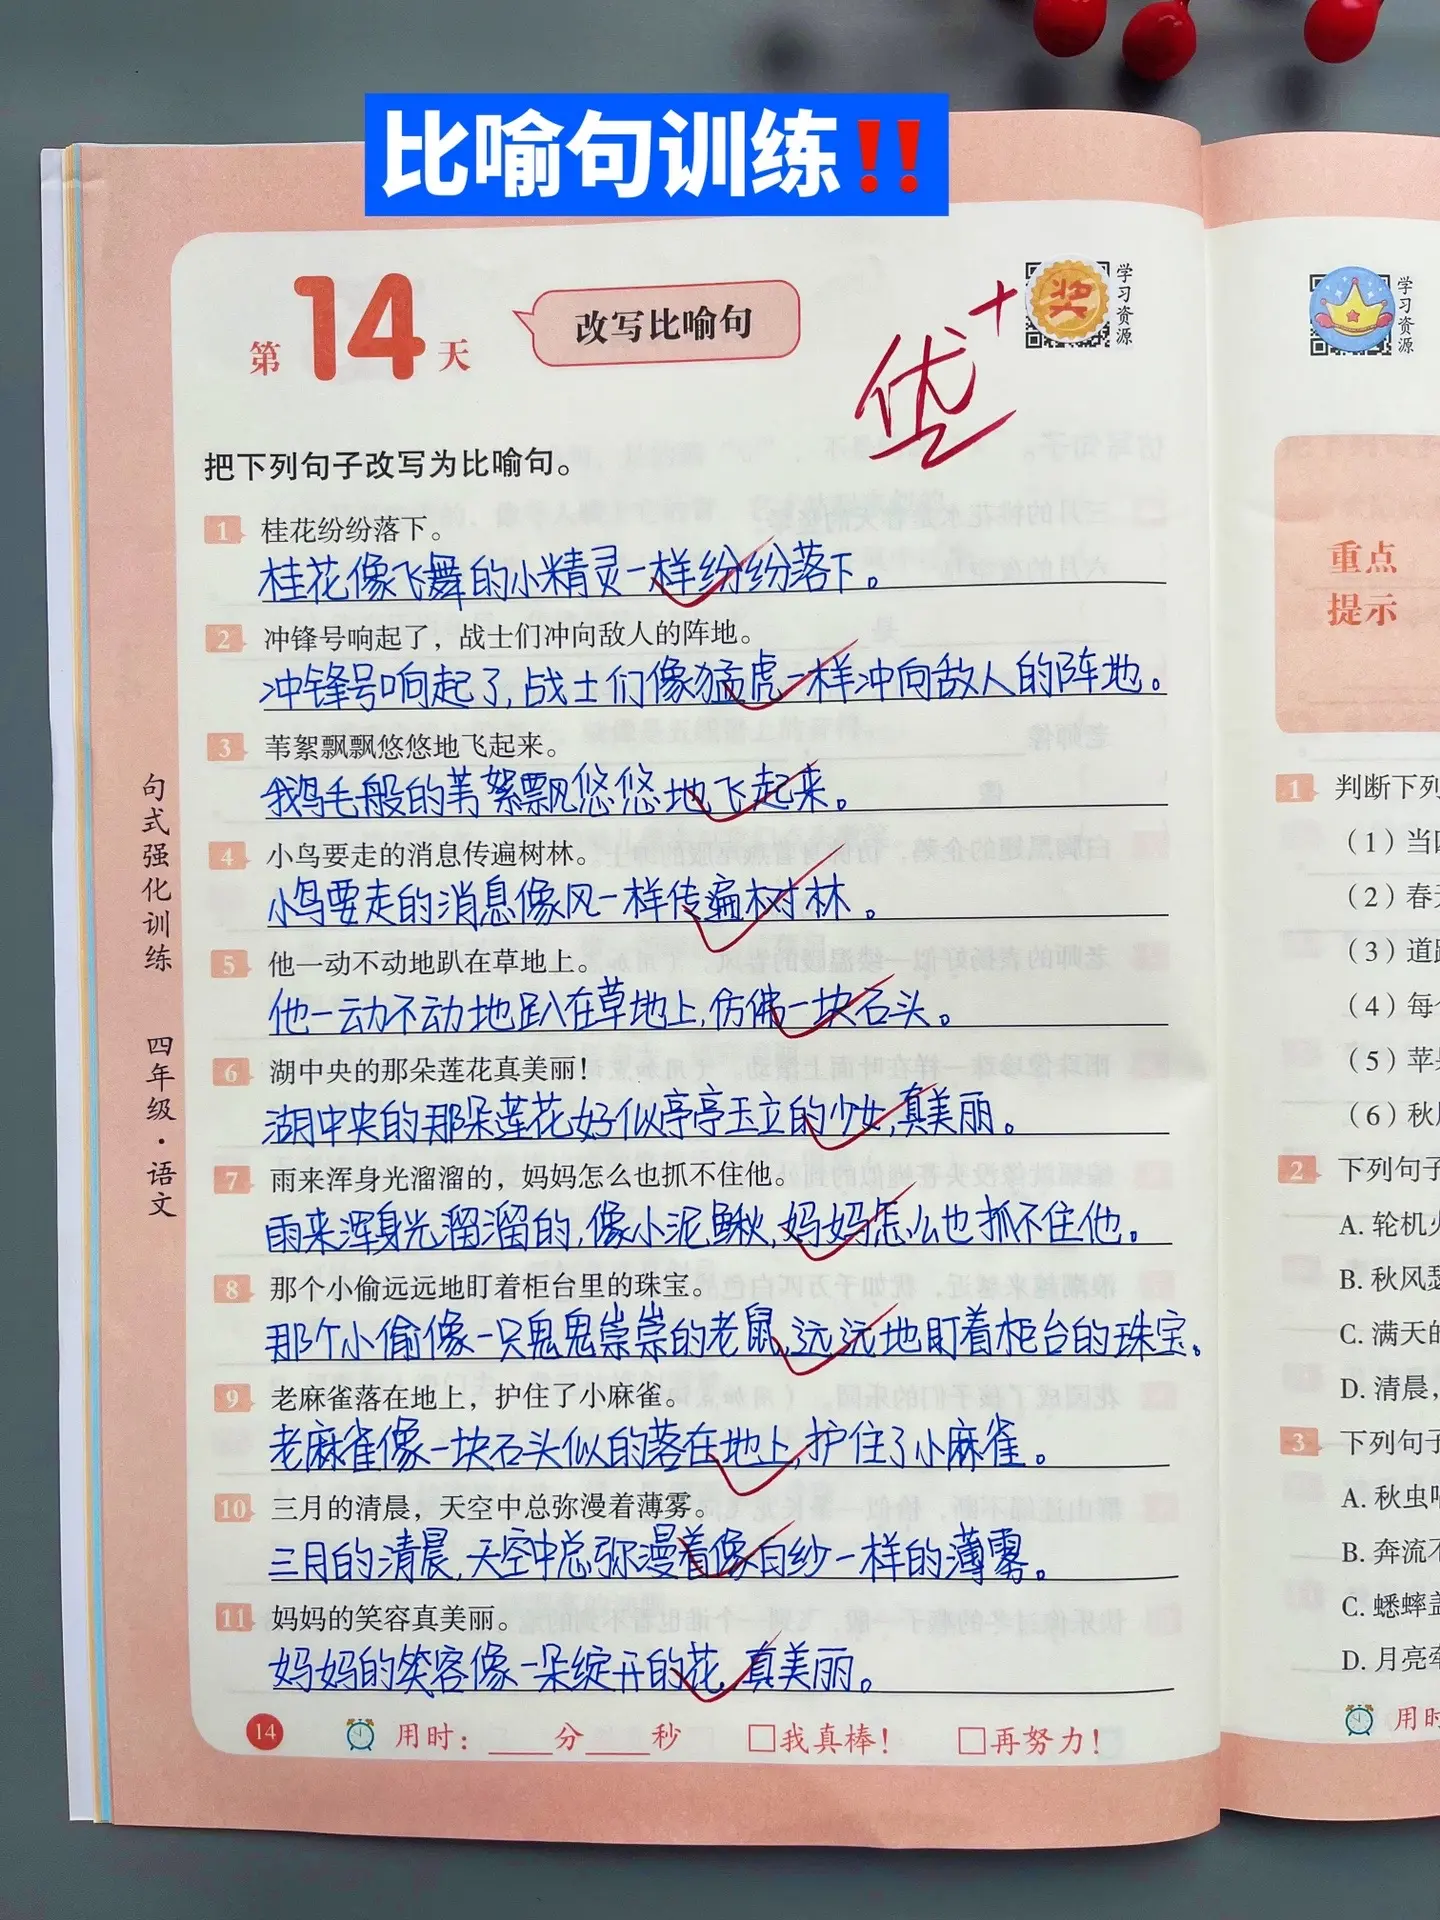 比喻句训练‼️
第14天
改写比喻句
优+
奖
学习资源
学习资源
把下列句子改写为比喻句。
1 桂花纷纷落下。
桂花像飞舞的小精灵一样纷纷落下。
2 冲锋号响起了，战士们冲向敌人的阵地。
冲锋号响起了,战士们像猛虎一样冲向敌人的阵地。
3 苇絮飘飘悠悠地飞起来。
鹅毛般的苇絮飘悠悠地飞起来。
4 小鸟要走的消息传遍树林。
小鸟要走的消息像风一样传遍树林。
5 他一动不动地趴在草地上。
他一动不动地趴在草地上,仿佛一块石头。
6 湖中央的那朵莲花真美丽！
湖中央的那朵莲花好似亭亭玉立的少女,真美丽。
7 雨来浑身光溜溜的，妈妈怎么也抓不住他。
雨来浑身光溜溜的,像小泥鳅,妈妈怎么也抓不住他。
8 那个小偷远远地盯着柜台里的珠宝。
那个小偷像一只鬼鬼祟祟的老鼠,远远地盯着柜台的珠宝。
9 老麻雀落在地上，护住了小麻雀。
老麻雀像一块石头似的落在地上,护住了小麻雀。
10 三月的清晨，天空中总弥漫着薄雾。
三月的清晨,天空中总弥漫着像白纱一样的薄雾。
11 妈妈的笑容真美丽。
妈妈的笑容像一朵绽开的花,真美丽。
14 用时：____分____秒 □我真棒！ □再努力！
句式强化训练 四年级·语文
重点
提示
1 判断下列
（1）当
（2）春
（3）道
（4）每
（5）苹
（6）秋
2 下列句子
A. 轮机
B. 秋风
C. 满天的
D. 清晨，
3 下列句子
A. 秋虫
B. 奔流不
C. 蟋蟀
D. 月亮
用时